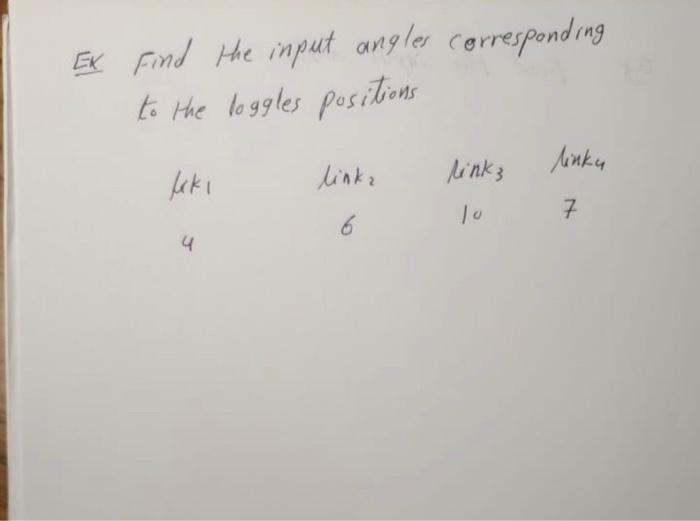 EX Find the input angles corresponding
to the loggles positions
link1 link2 link3 link4
4 6 10 7